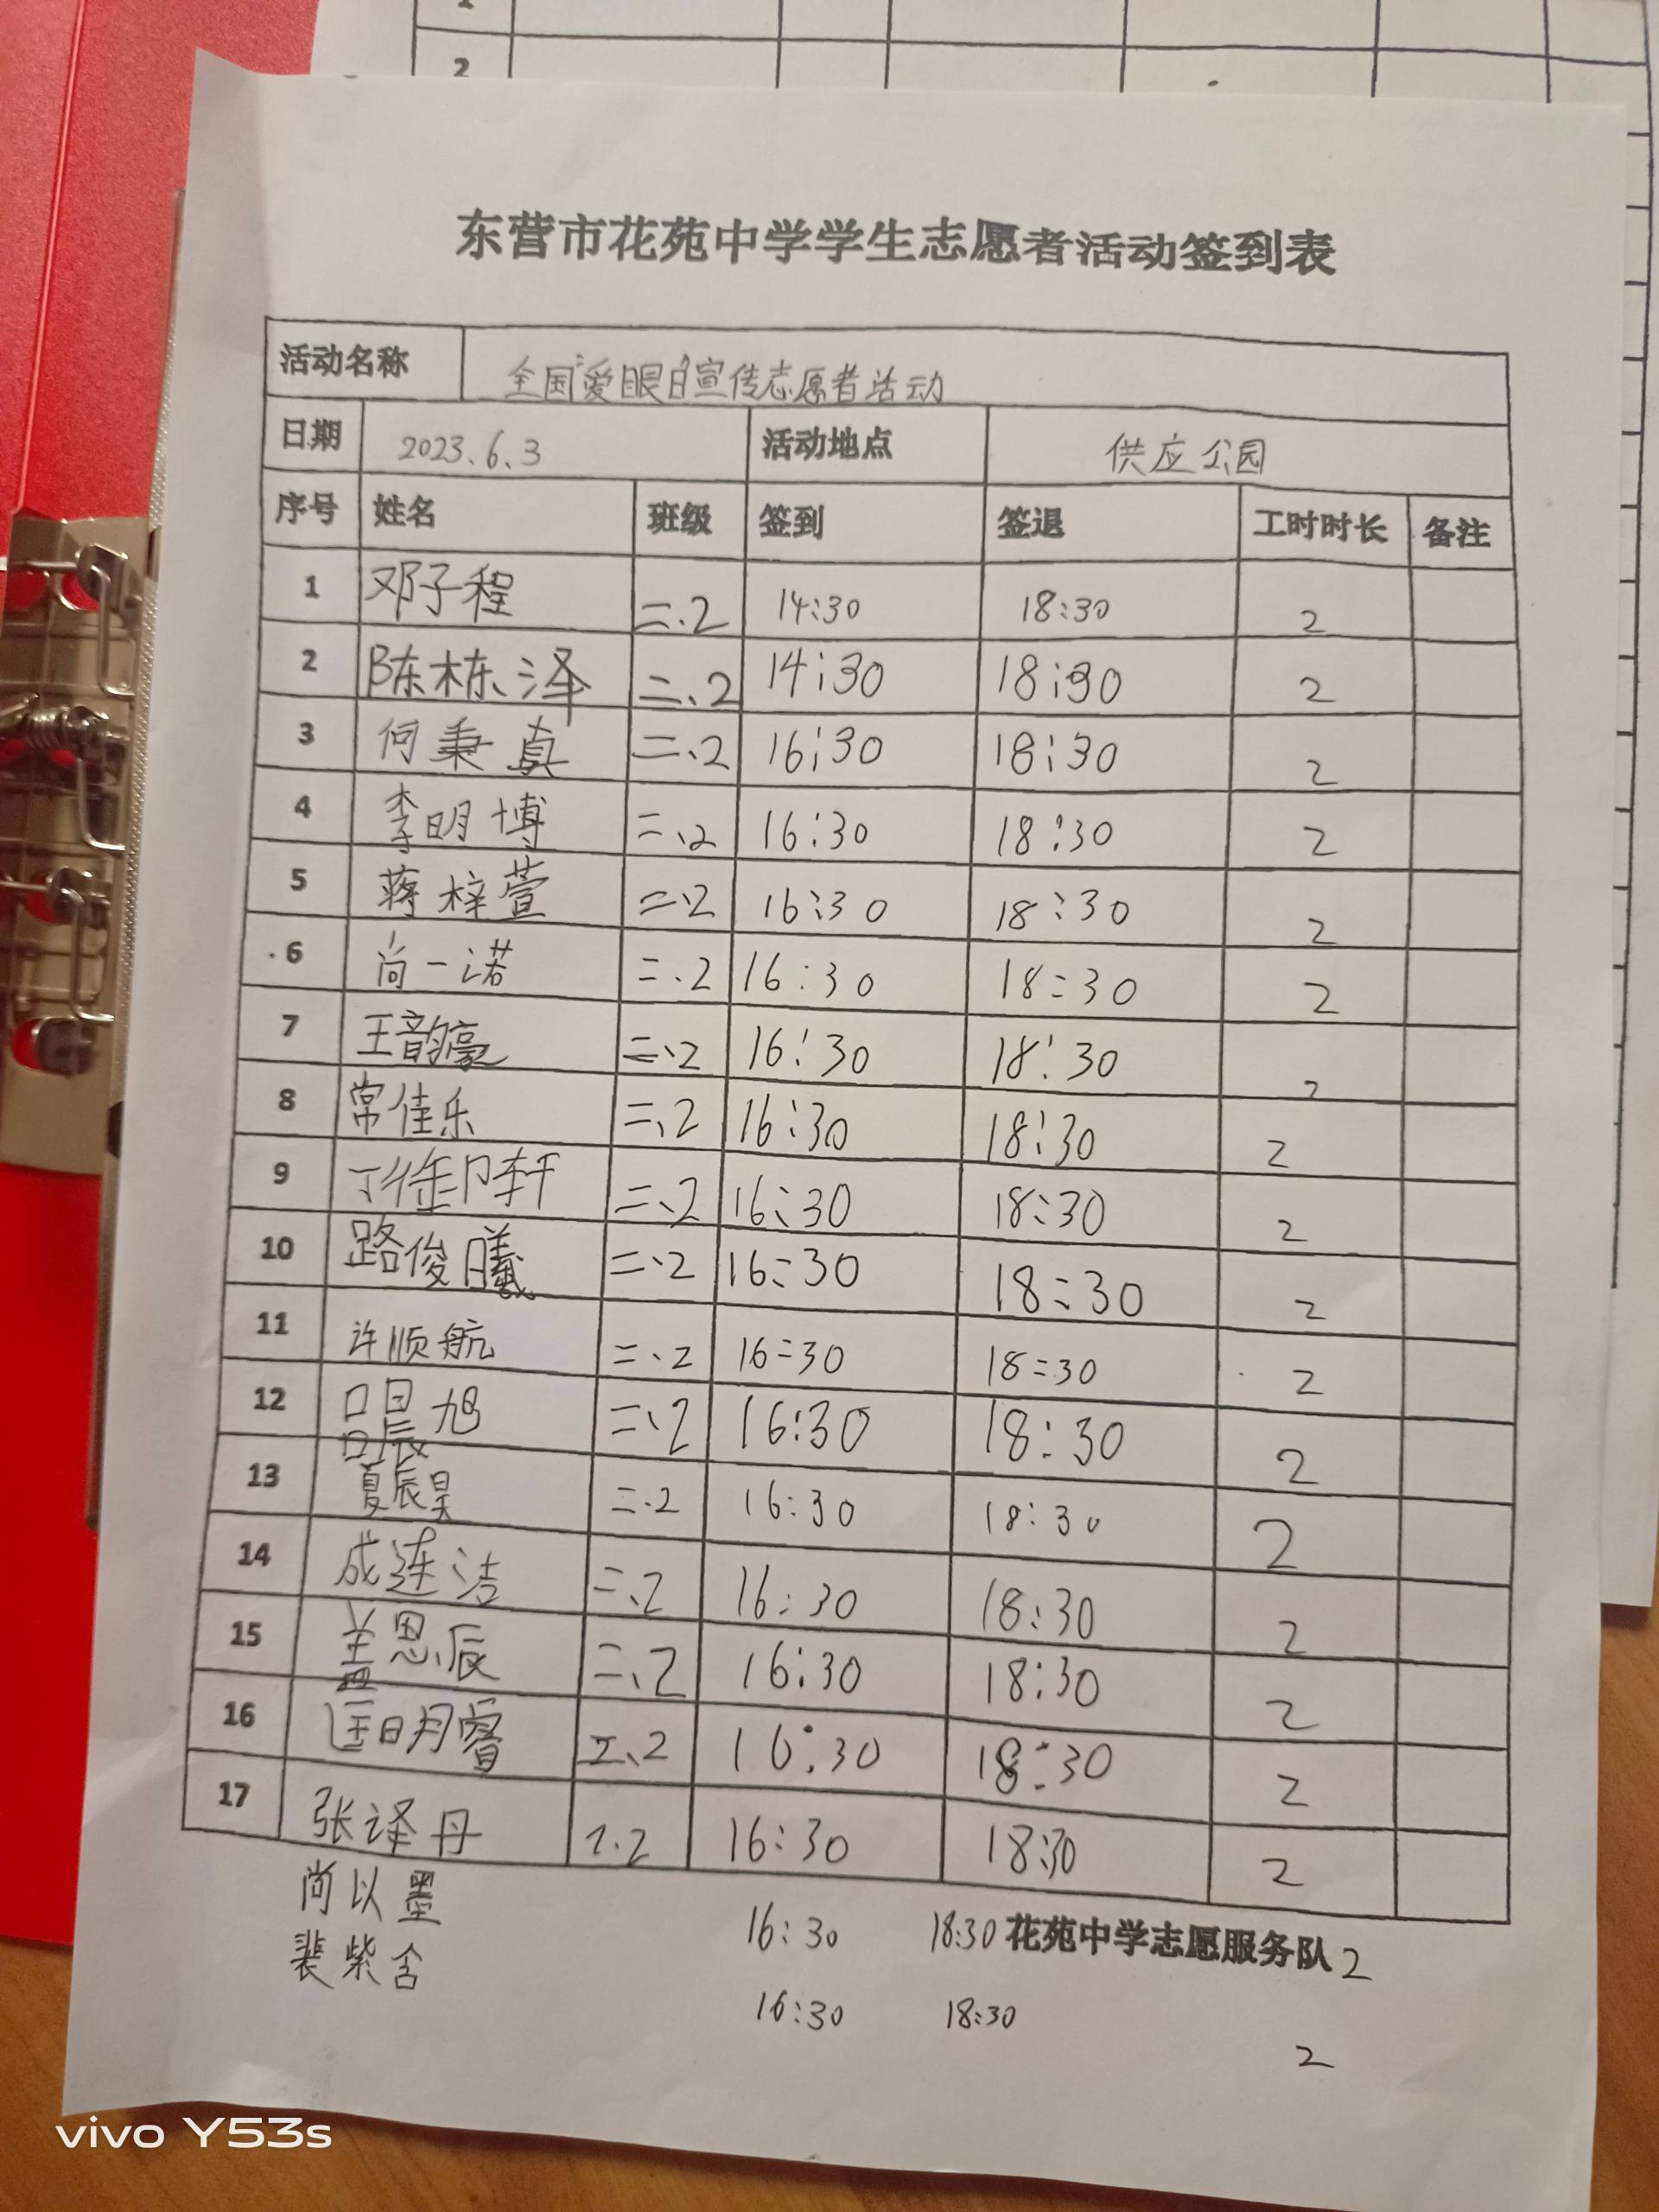 1
2
东营市花苑中学学生志愿者活动签到表
活动名称 全国“爱眼日”宣传志愿者活动
日期 2023.6.3 活动地点 供应公园
序号 姓名 班级 签到 签退 工时时长 备注
1 邓子程 二.2 14:30 18:30 2
2 陈栋泽 二.2 14:30 18:30 2
3 何秉真 二.2 16:30 18:30 2
4 李明博 二.2 16:30 18:30 2
5 蒋梓萱 二.2 16:30 18:30 2
6 尚一诺 二.2 16:30 18:30 2
7 王韵豪 二.2 16:30 18:30 2
8 常佳乐 二.2 16:30 18:30 2
9 二.2 16:30 18:30 2
10 路俊曦 二.2 16:30 18:30 2
11 许顺航 二.2 16:30 18:30 2
12 吕晨旭 二.2 16:30 18:30 2
13 夏辰昊 二.2 16:30 18:30 2
14 成连洁 二.2 16:30 18:30 2
15 盖思辰 二.2 16:30 18:30 2
16 匡明睿 二.2 16:30 18:30 2
17 张译丹 2.2 16:30 18:30 2
尚以墨 16:30 18:30 花苑中学志愿服务队 2
裴紫含 16:30 18:30 2
vivo Y53s